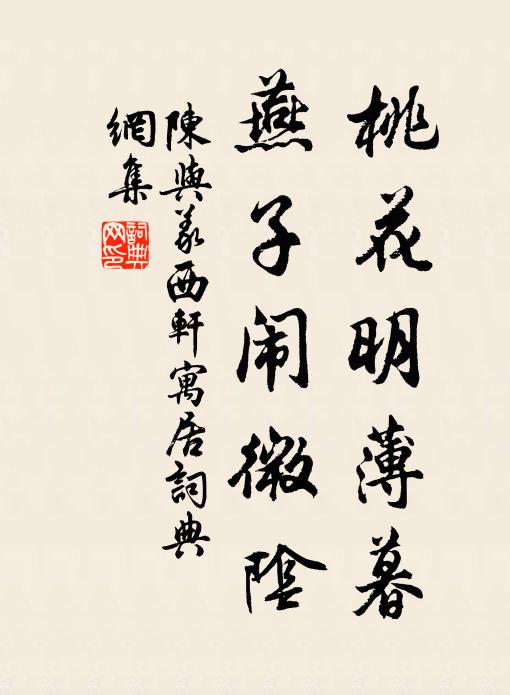 桃花明薄暮
燕子闹微陰
陳與義西軒寓居詞典
網集
詞典
网印